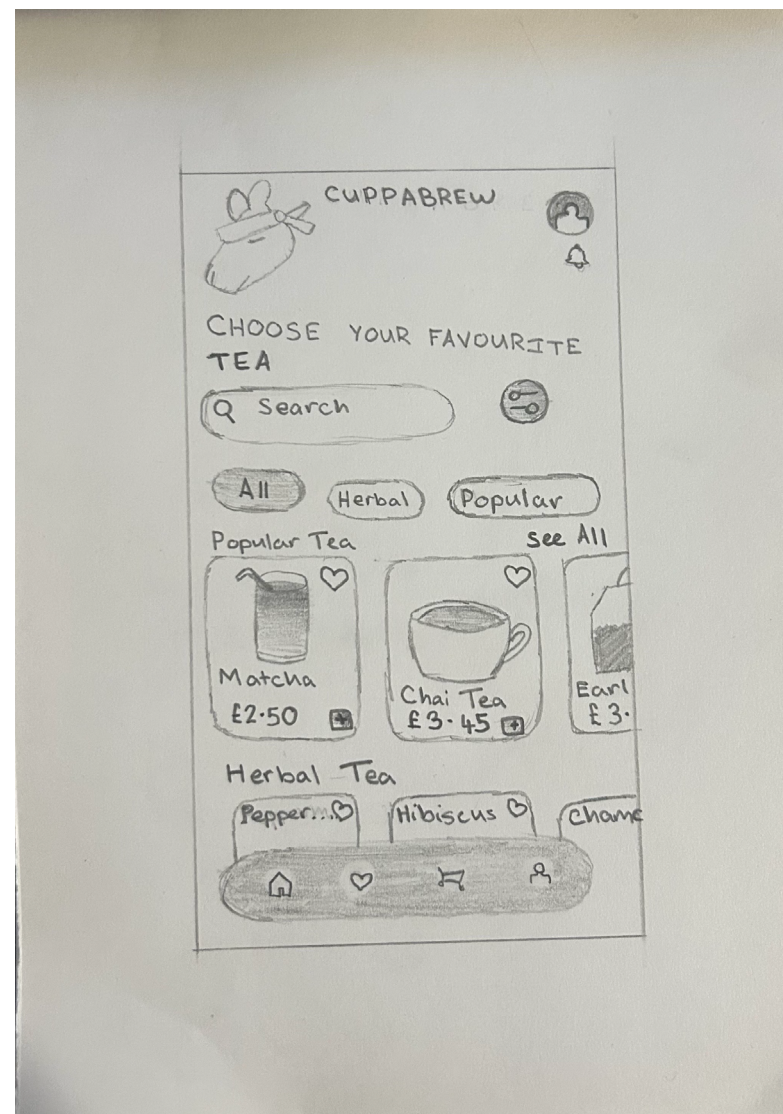 CUPPABREW
CHOOSE YOUR FAVOURITE
TEA
Search
All Herbal Popular
Popular Tea See All
Matcha Chai Tea Earl
£2.50 £3.45 £3.
Herbal Tea
Pepper... Hibiscus Chamo